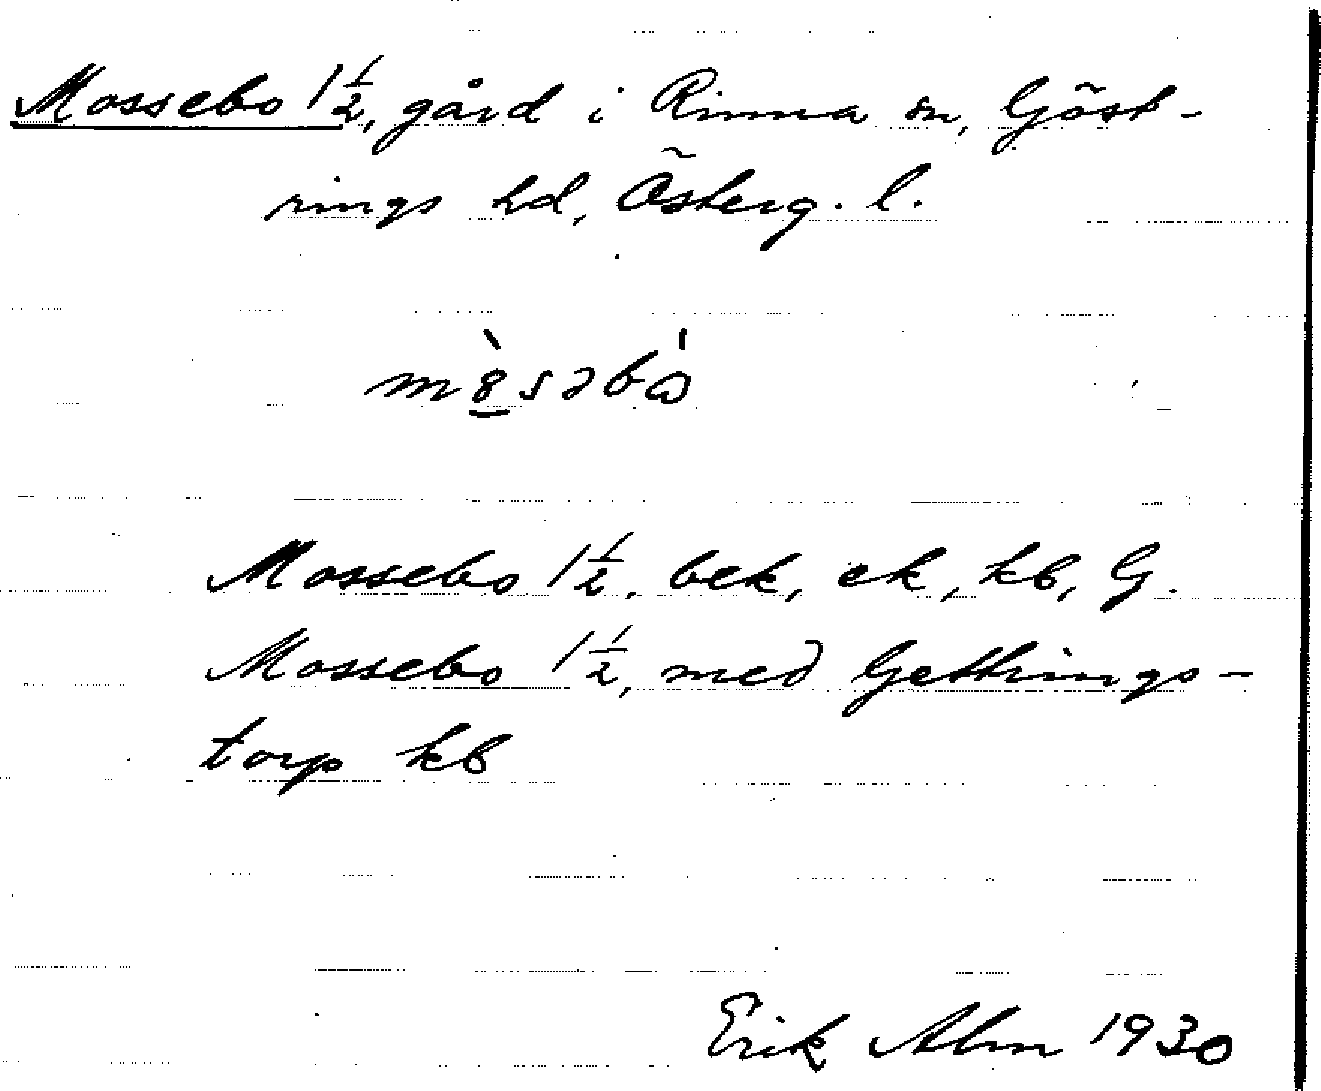 Mossebo 1 1/2, gård i Rinna sn, Göst-
rings hd, Österg. l.
mòsəbò
Mossebo 1 1/2, bek, ek, kb, G.
Mossebo 1 1/2, med Gettrings-
torp kb
Erik Alm 1930